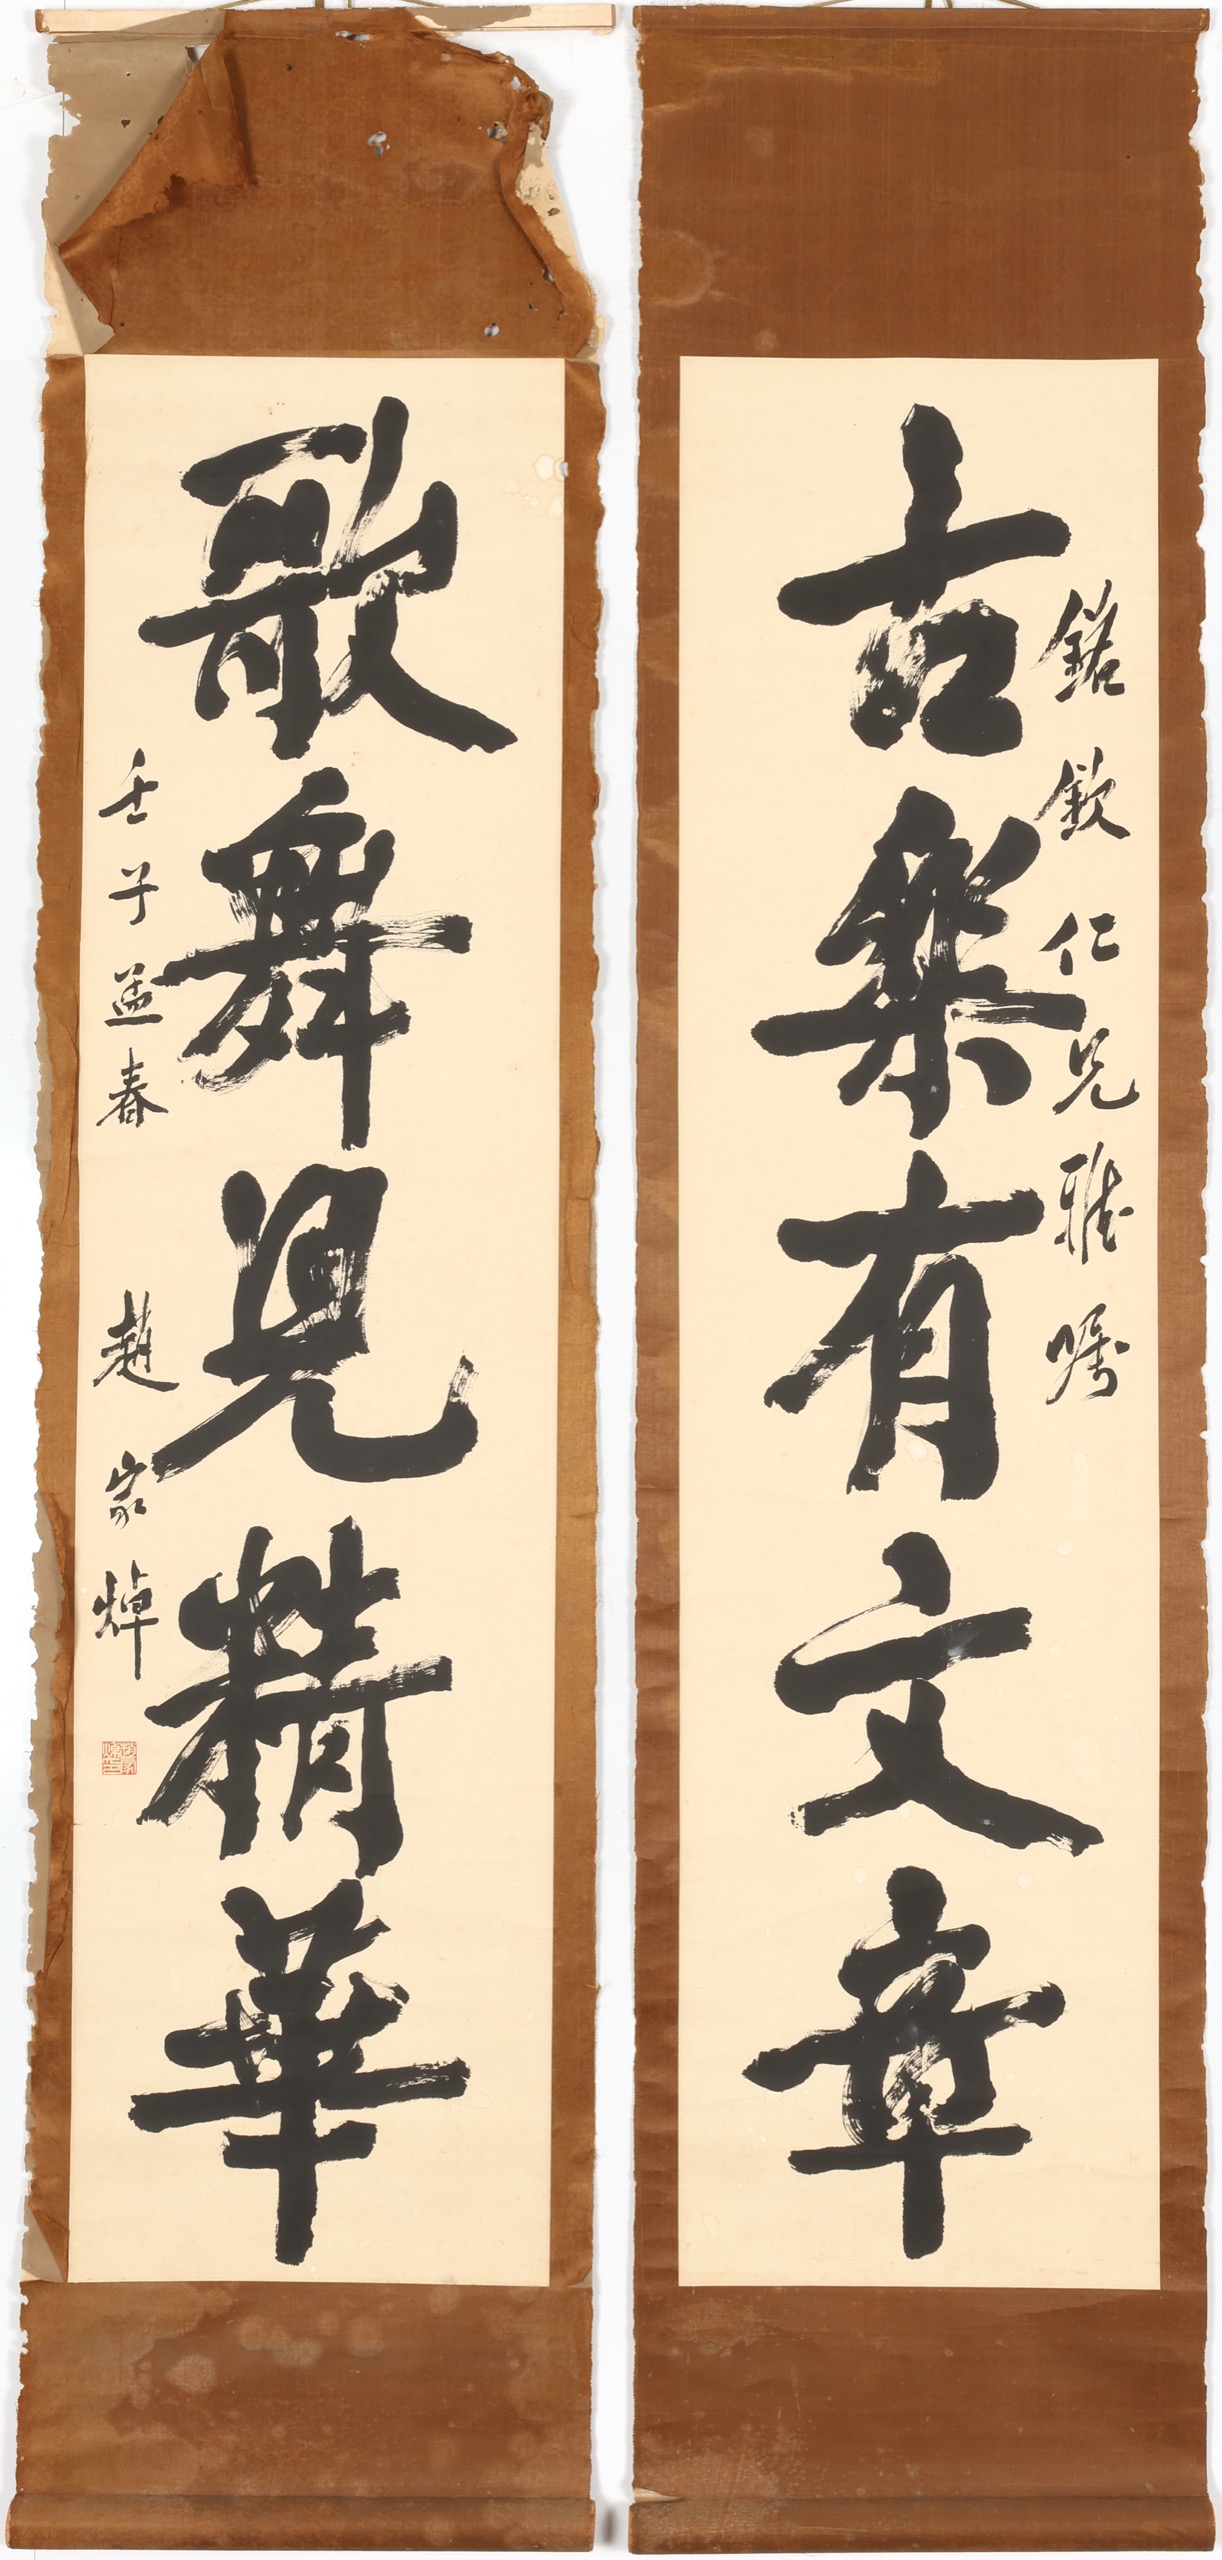 欽仁兄雅嘱
古樂有文章
歌舞見精華
壬子孟春 趙家焯